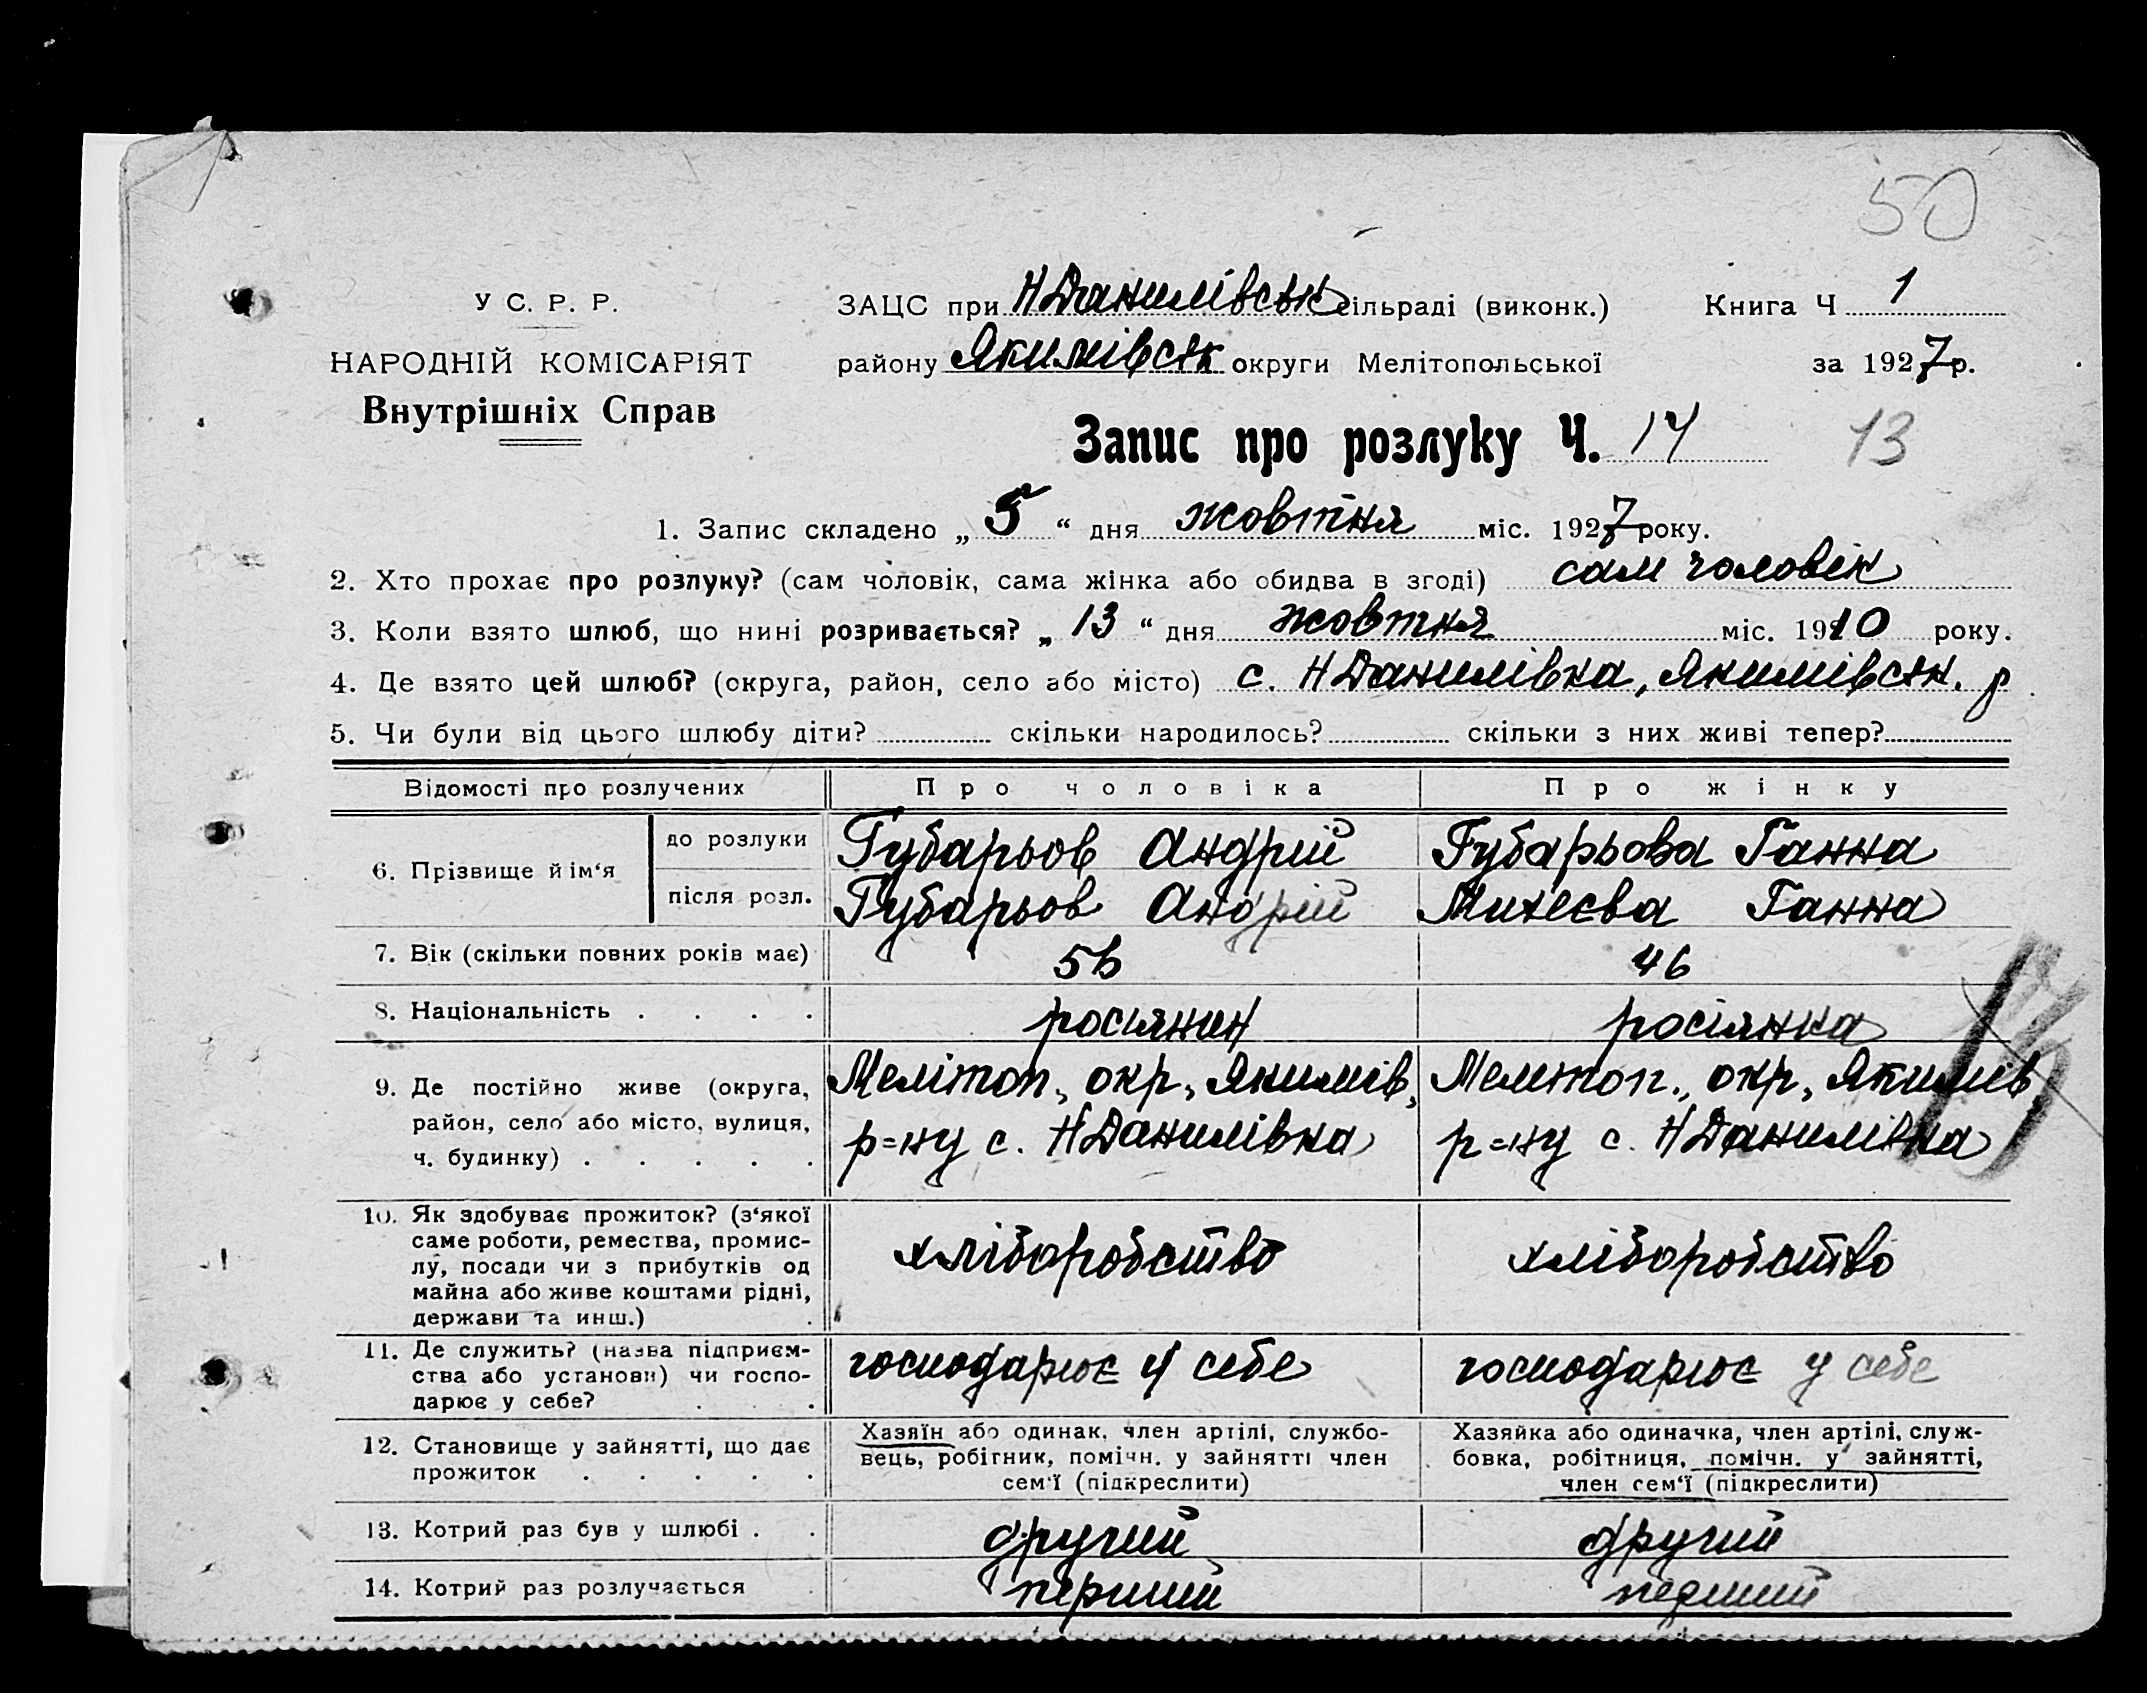 50
У С. Р. Р.
НАРОДНІЙ КОМІСАРІЯТ
Внутрішніх Справ
ЗАЦС при Н Данилівськ сільраді (виконк.)
Книга Ч 1
району Якимівськ округи Мелітопольської
за 1927 р.
Запис про розлуку Ч. 14
13
1. Запис складено „ 5 “ дня жовтня міс. 1927 року.
2. Хто прохає про розлуку? (сам чоловік, сама жінка або обидва в згоді) сам чоловік
3. Коли взято шлюб, що нині розривається? „ 13 “ дня жовтня міс. 1910 року.
4. Де взято цей шлюб? (округа, район, село або місто) с. Н Данилівка, Якимівськ. р
5. Чи були від цього шлюбу діти? скільки народилось? скільки з них живі тепер?
Відомості про розлучених
Про чоловіка
Про жінку
6. Прізвище й ім‘я
до розлуки
Губарьов Андрій
Губарьова Ганна
після розл.
Губарьов Андрій
Михеєва Ганна
7. Вік (скільки повних років має)
46
8. Національність . . . .
росіянин
росіянка
9. Де постійно живе (округа,
район, село або місто, вулиця,
ч. будинку) . . . . .
Мелітоп., окр., Якимів,
р=ну с. Н Данилівка
Мелітоп., окр., Якимів
р=ну с. Н Данилівка
10. Як здобуває прожиток? (з‘якої
саме роботи, ремества, промис-
лу, посади чи з прибутків од
майна або живе коштами рідні,
держави та инш.) .
хліборобство
хліборобство
11. Де служить? (назва підприєм-
ства або установи) чи госпо-
дарює у себе? . . .
господарює у себе
господарює у себе
12. Становище у зайнятті, що дає
прожиток . . . . .
Хазяїн або одинак, член артілі, службо-
вець, робітник, помічн. у зайнятті член
сем‘ї (підкреслити)
Хазяйка або одиначка, член артілі, служ-
бовка, робітниця, помічн. у зайнятті,
член сем‘ї (підкреслити)
13. Котрий раз був у шлюбі . .
другий
другий
14. Котрий раз розлучається
перший
перший